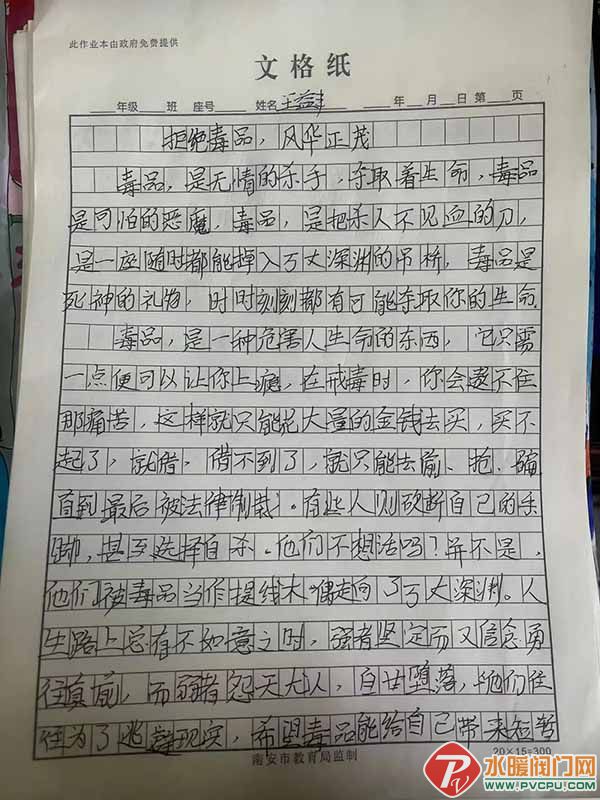 此作业本由政府免费提供
文格纸
年级 班 座号 姓名 王益丰 年 月 日 第 页
拒绝毒品，风华正茂
毒品，是无情的杀手，夺取着生命，毒品
是可怕的恶魔，毒品，是把杀人不见血的刀，
是一座随时都能掉入万丈深渊的吊桥，毒品是
死神的礼物，时时刻刻都有可能夺取你的生命.
毒品，是一种危害人生命的东西，它只需
一点便可以让你上瘾，在戒毒时，你会受不住
那痛苦，这样就只能花大量的金钱去买，买不
起了，就借，借不到了，就只能去偷、抢、骗
直到最后被法律制裁。有些人则砍断自己的手
脚，甚至选择自杀。他们不想活吗？并不是，
他们被毒品当作提线木偶走向了万丈深渊。人
生路上总有不如意之时，强者坚定而又信念勇
往直前，而弱者怨天尤人，自甘堕落，他们往
往为了逃避现实，希望毒品能给自己带来短暂
南安市教育局监制
20×15=300
水暖阀门网
WWW.PVCPU.COM